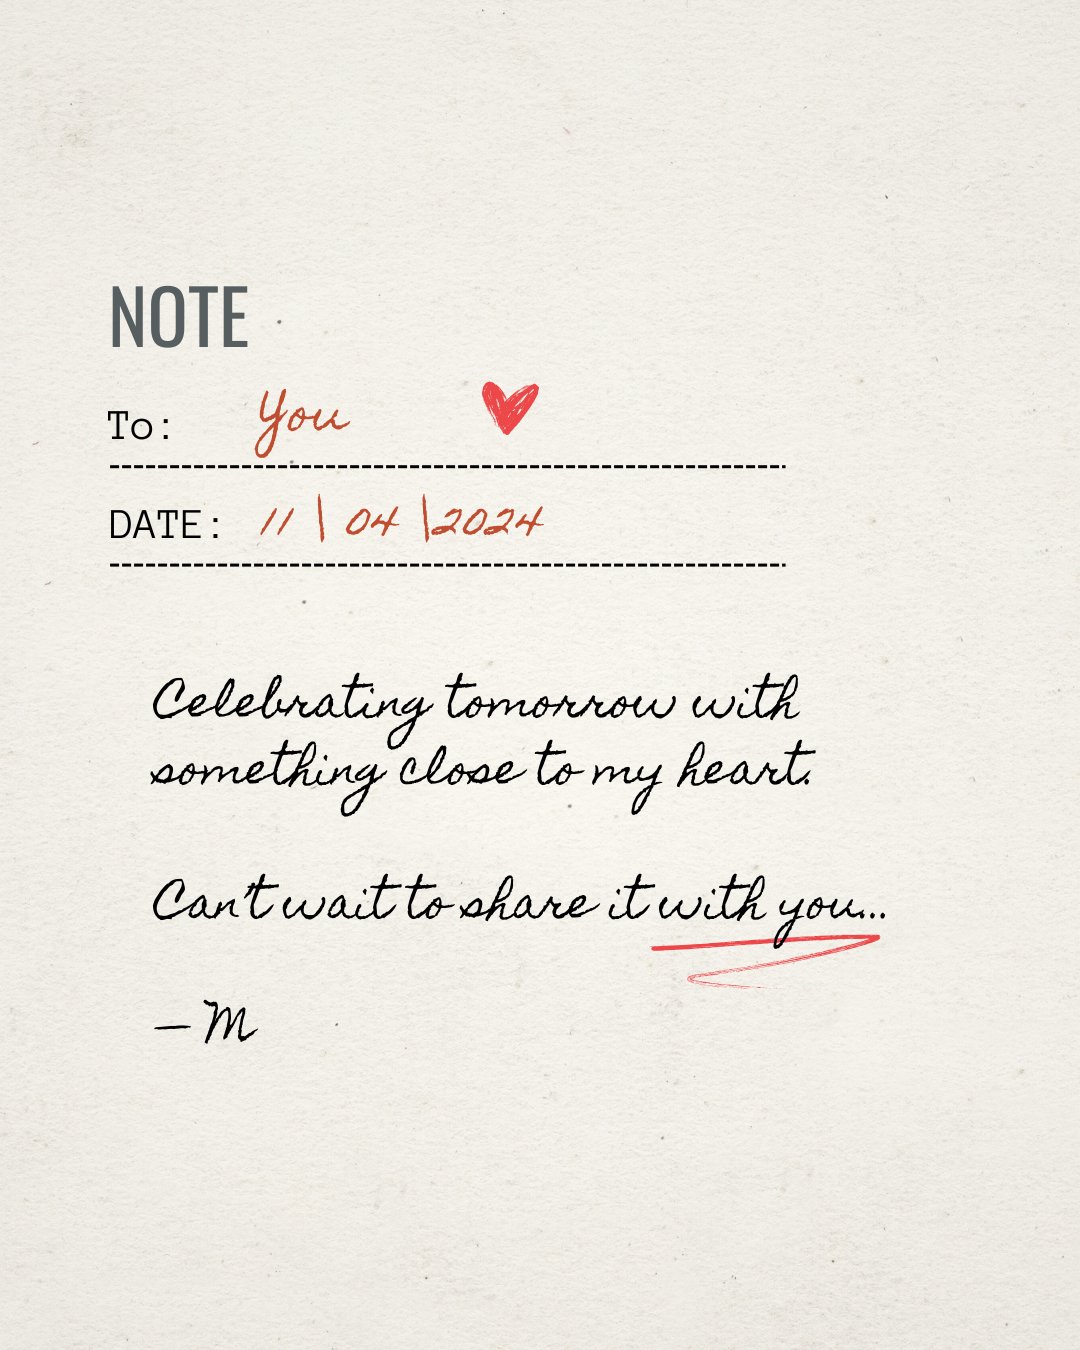 NOTE
To: You
DATE: 11 | 04 | 2024
Celebrating tomorrow with
something close to my heart.
Can't wait to share it with you...
— M